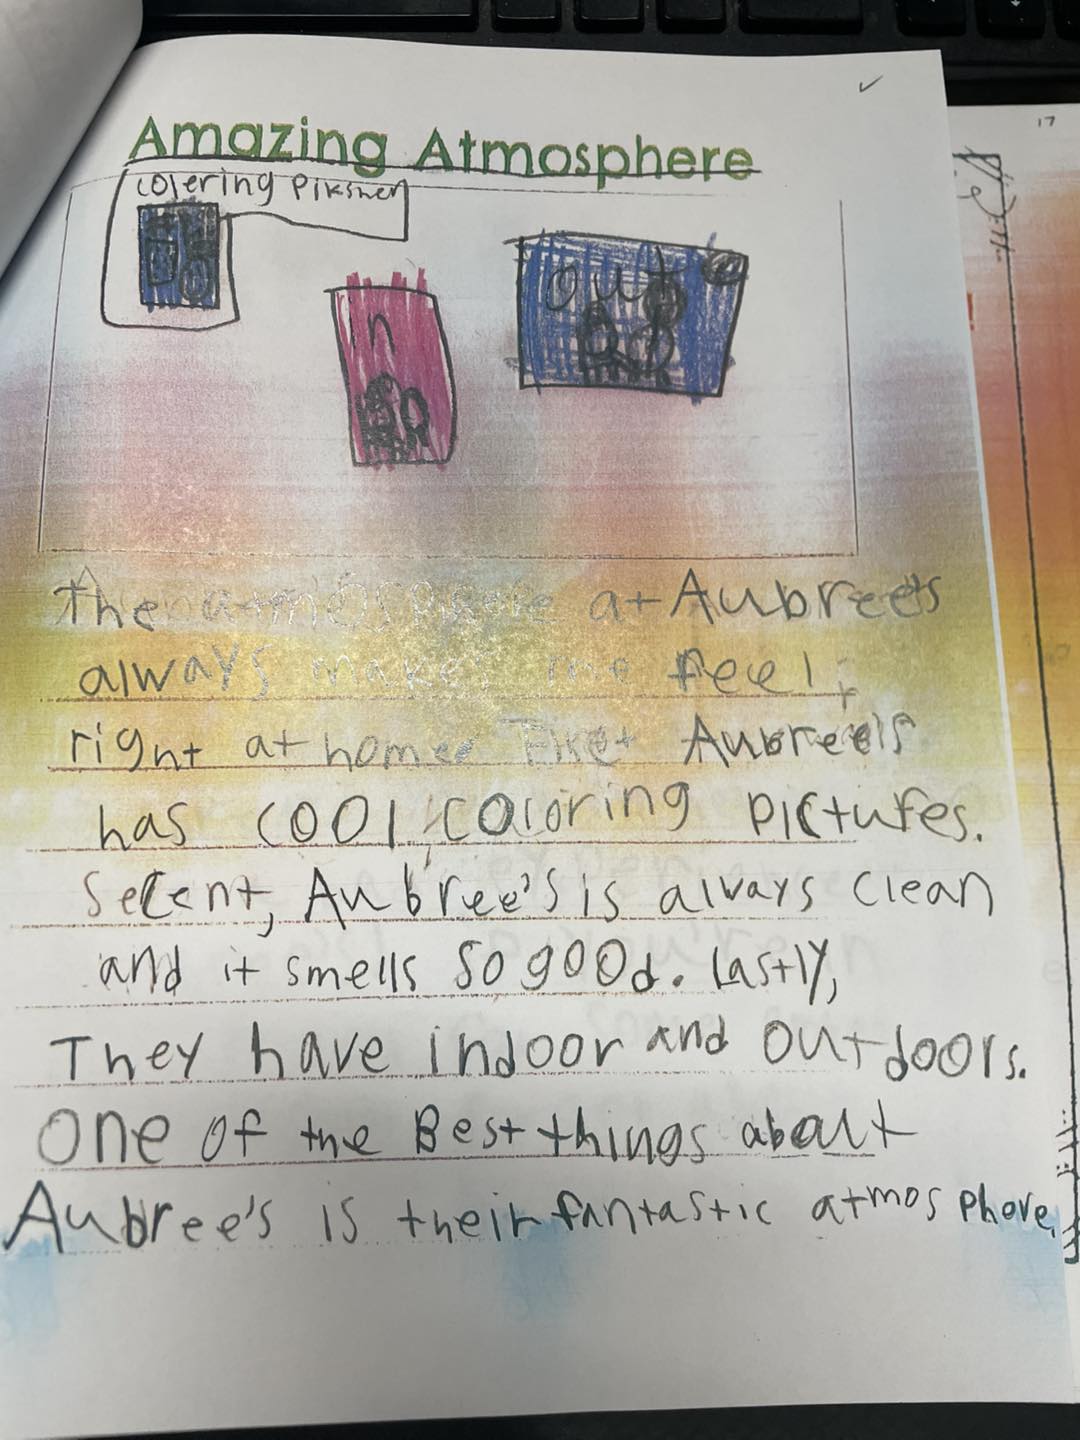 17
Amazing Atmosphere
colering Piksher
in
out
The atmosphere at Aubree's
always makes me feel
right at home. First Aubree's
has cool, coloring pictures.
Secent, Aubree's is always clean
and it smells so good. Lastly,
They have indoor and outdoors.
One of the Best things about
Aubree's is their fantastic atmosphore.